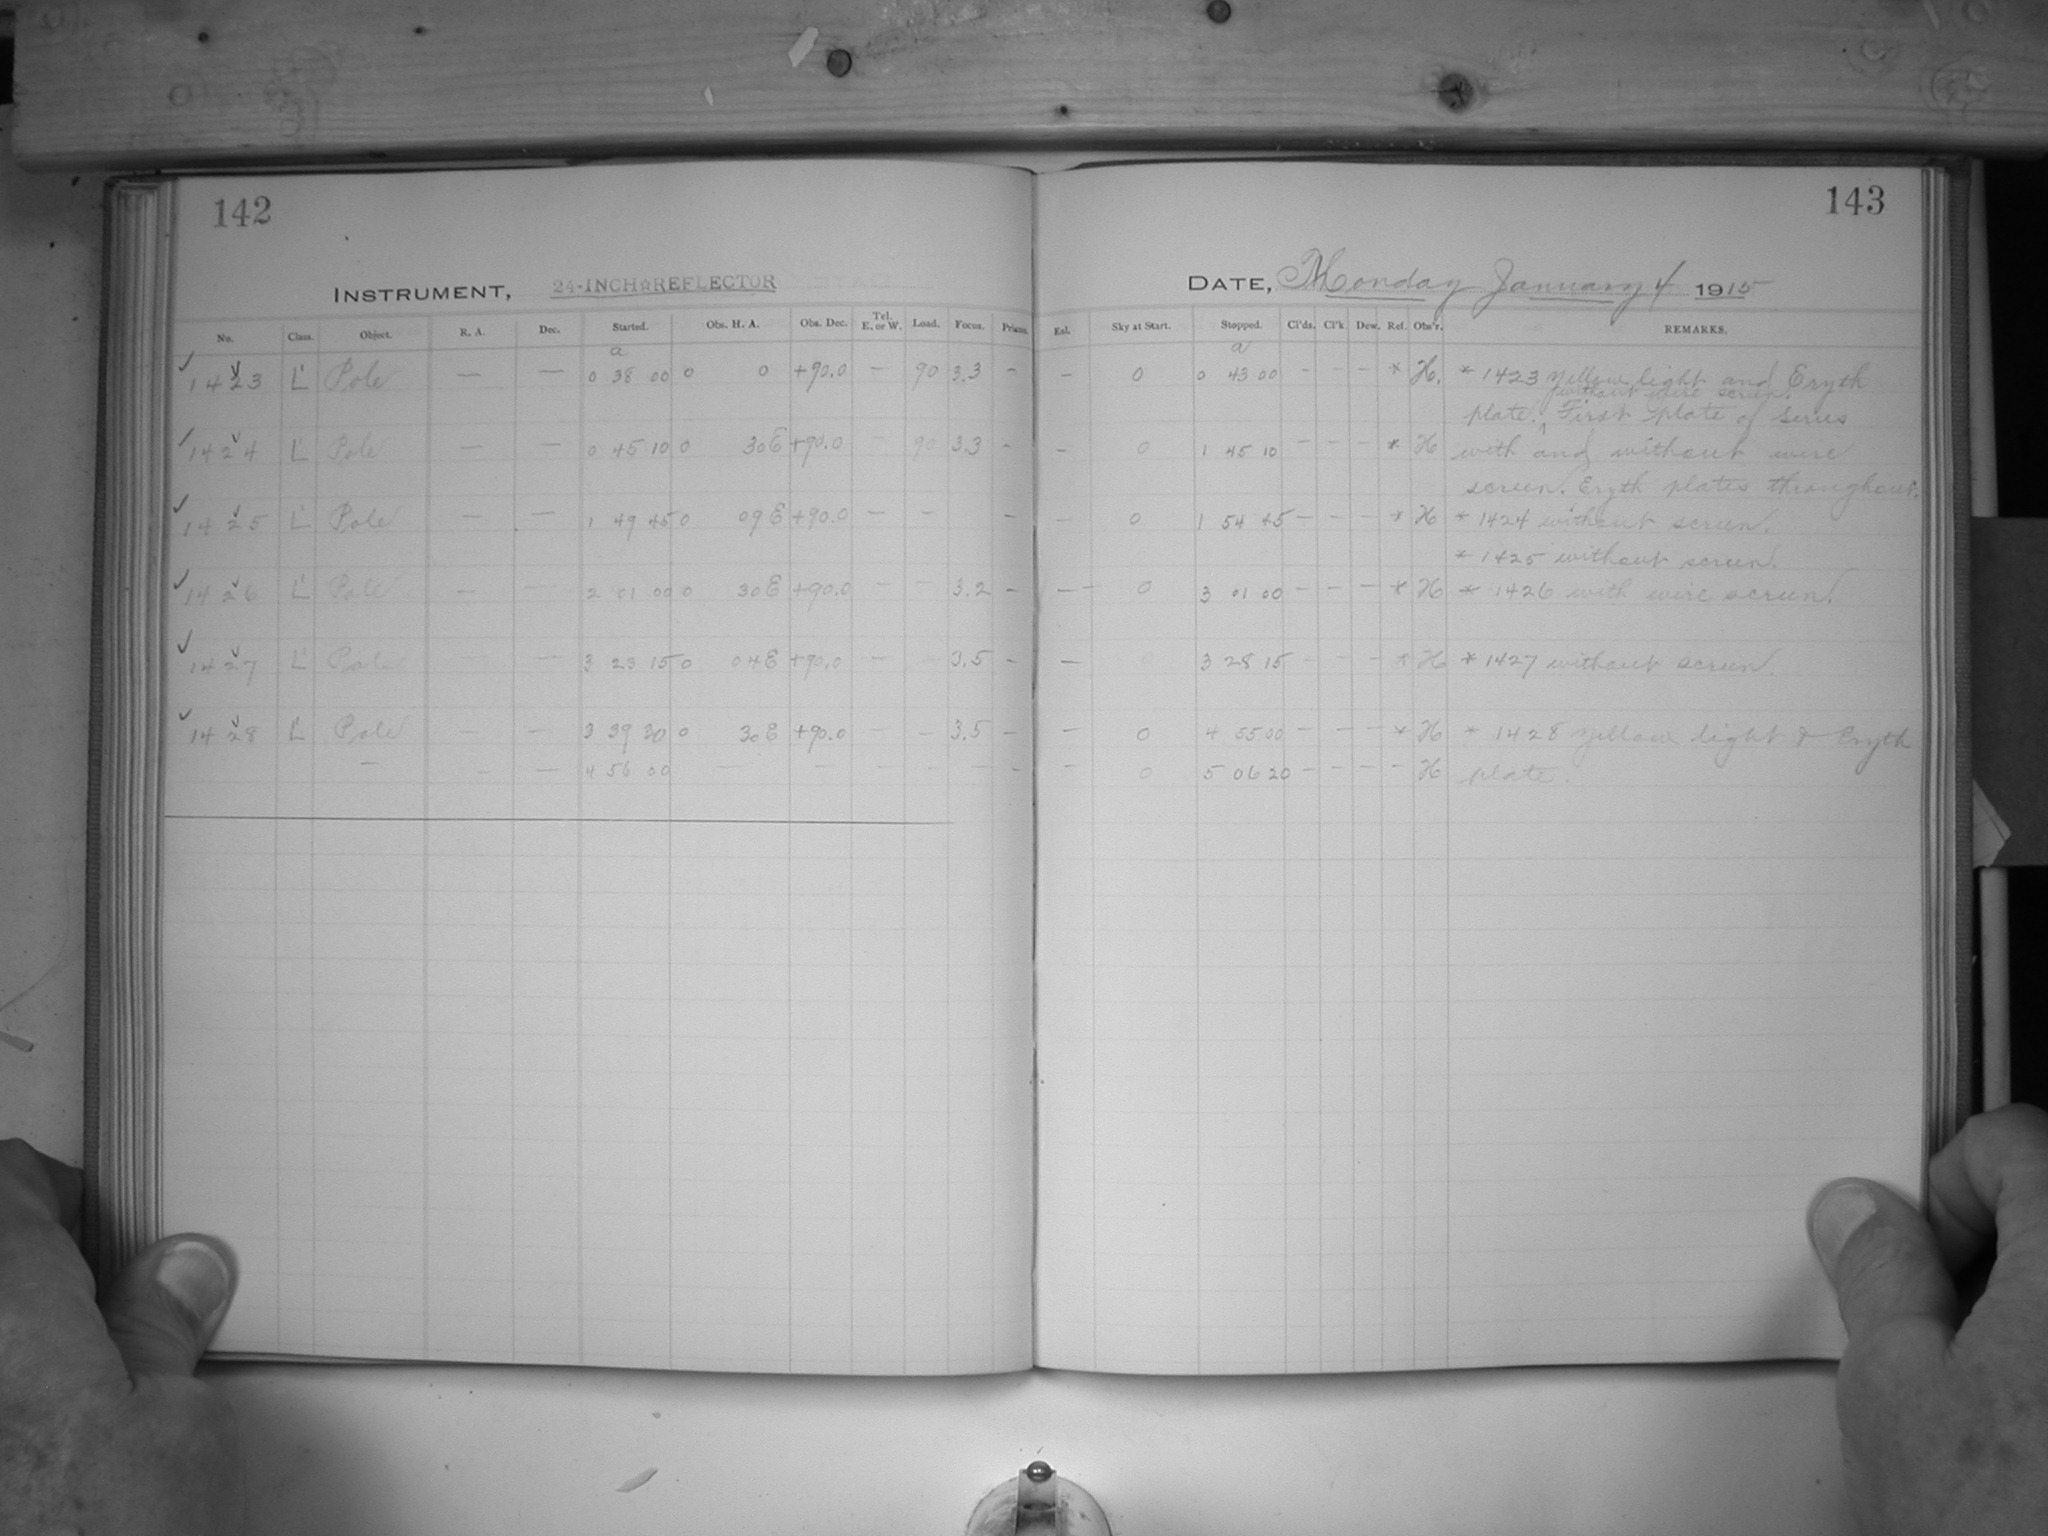 142
143
INSTRUMENT, 24-INCH☆REFLECTOR
DATE, Monday January 4 1915
No. Class. Object. R. A. Dec. Started. Obs. H. A. Obs. Dec. Tel. E. or W. Load. Focus. Prisms.
Esl. Sky at Start. Stopped. Cl'ds. Cl'k. Dew. Ref. Obs'r. REMARKS.
a
a
1423 L' Pole — — 0 38 00 0 0 +90.0 — 90 3.3 –
– 0 0 43 00 – – – * H. * 1423 yellow light and Eryth
without wire screen.
plate. ^ First plate of series
1424 L' Pole — — 0 45 10 0 30E +90.0 — 90 3.3 –
– 0 1 45 10 – – – * H with and without wire
screen. Eryth plates throughout.
1425 L' Pole — — 1 49 45 0 09E +90.0 — — — –
– 0 1 54 45 – – – * H * 1424 without screen.
* 1425 without screen.
1426 L' Pole — — 2 01 00 0 30E +90.0 — — 3.2 –
– 0 3 01 00 – – – * H * 1426 with wire screen.
1427 L' Pole — — 3 23 15 0 04E +90.0 — — 3.5 –
– 0 3 28 15 – – – * H * 1427 without screen.
1428 L' Pole — — 3 39 30 0 30E +90.0 — — 3.5 –
– 0 4 55 00 – – – * H * 1428 yellow light & Eryth
— — — 4 56 00 — — — — — –
– 0 5 06 20 – – – – H plate.